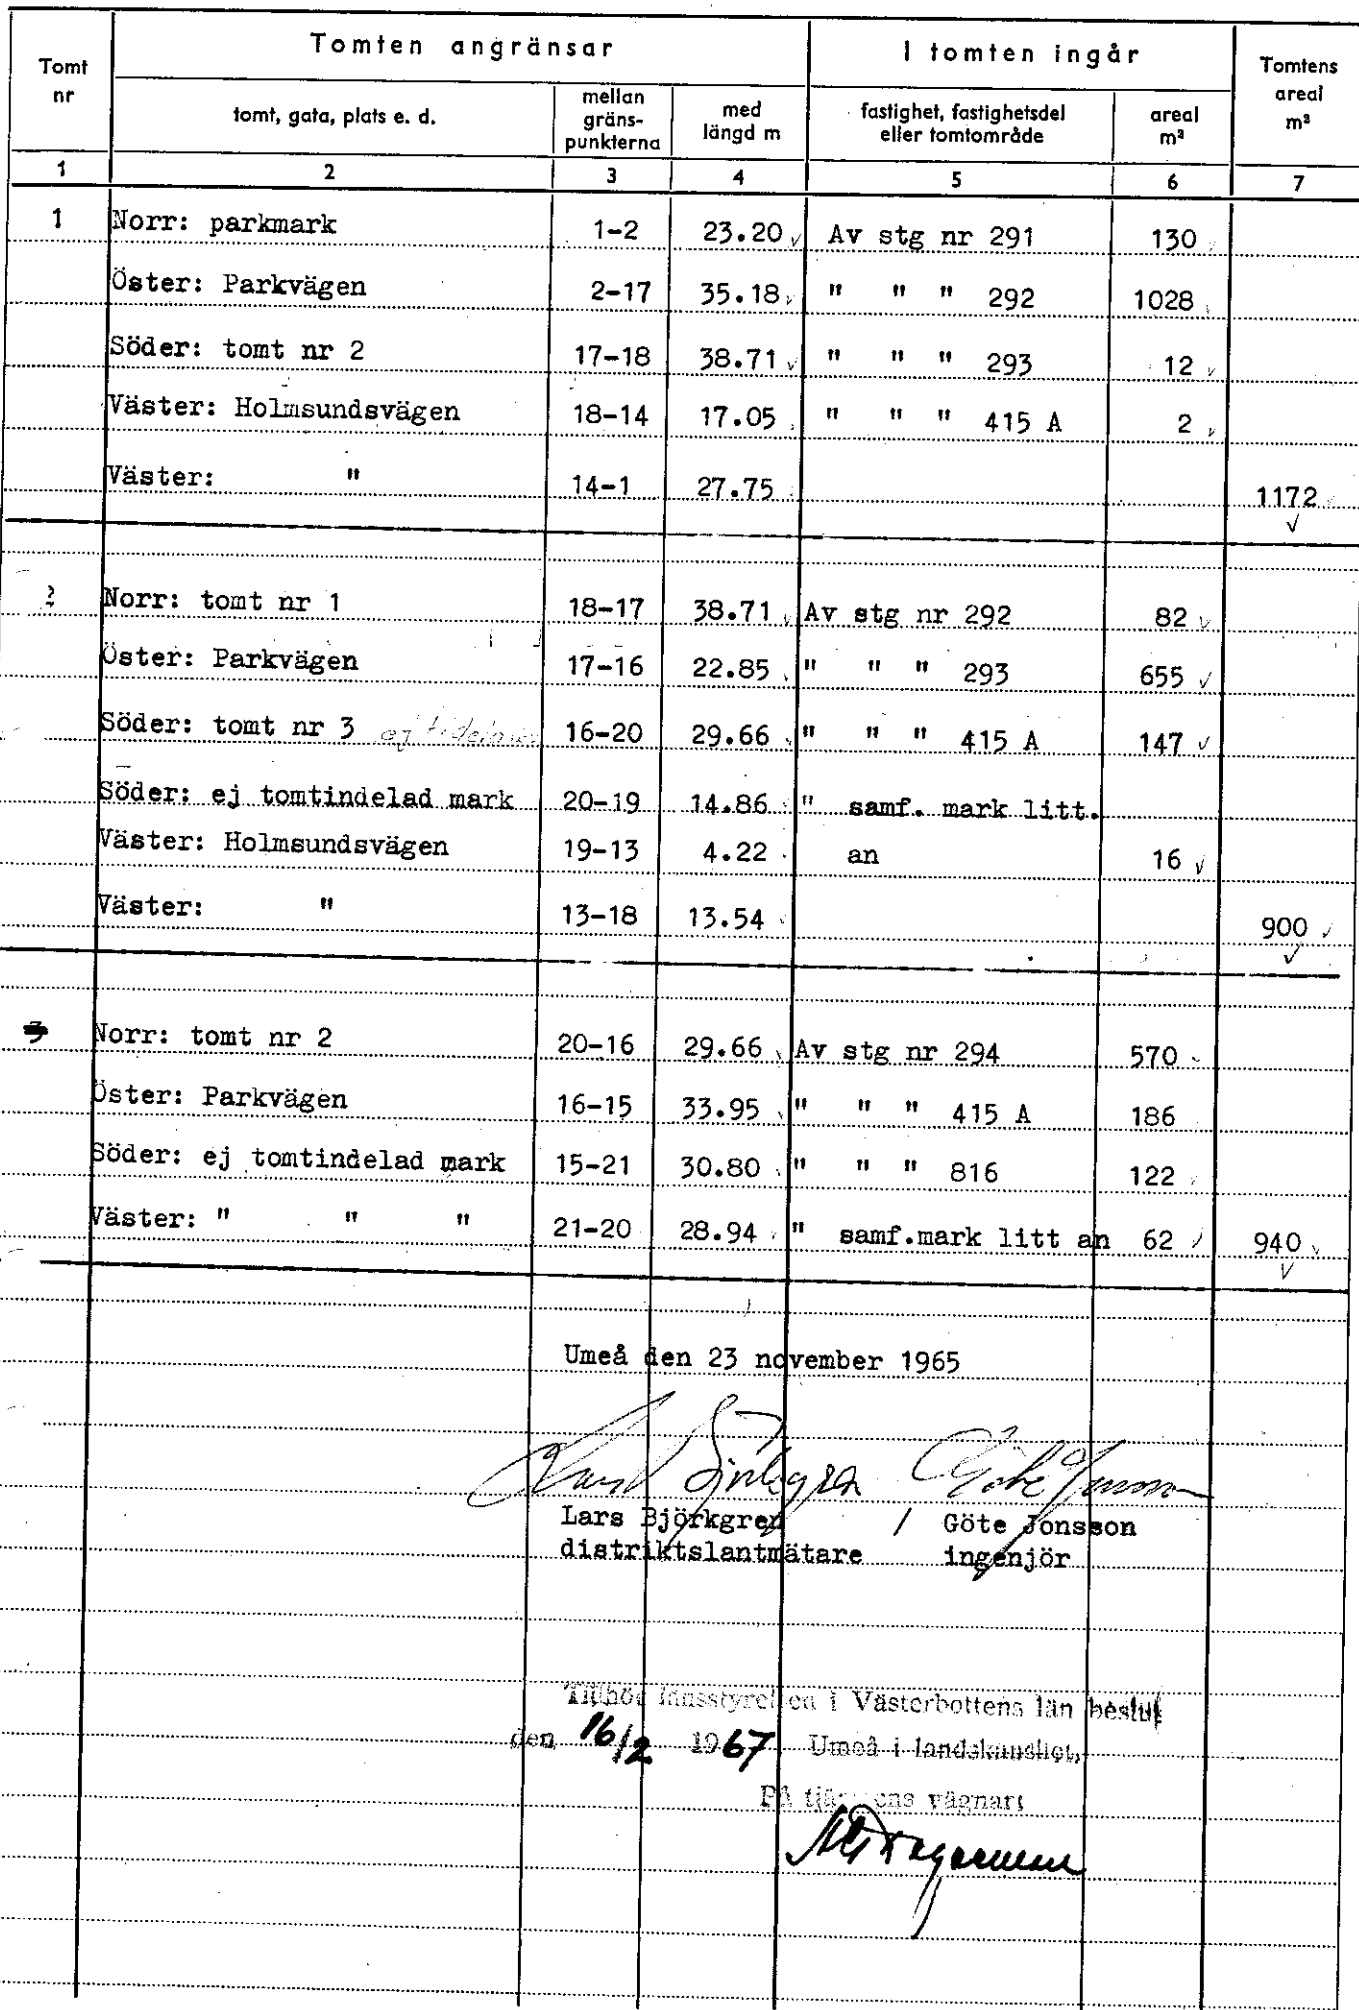 Tomt nr Tomten angränsar I tomten ingår Tomtens areal m²
tomt, gata, plats e. d. mellan gräns-punkterna med längd m fastighet, fastighetsdel eller tomtområde areal m²
1 2 3 4 5 6 7
1 Norr: parkmark 1-2 23.20 Av stg nr 291 130
Öster: Parkvägen 2-17 35.18 " " " 292 1028
Söder: tomt nr 2 17-18 38.71 " " " 293 12
Väster: Holmsundsvägen 18-14 17.05 " " " 415 A 2
Väster: " 14-1 27.75 1172
2 Norr: tomt nr 1 18-17 38.71 Av stg nr 292 82
Öster: Parkvägen 17-16 22.85 " " " 293 655
Söder: tomt nr 3 ej 16-20 29.66 " " " 415 A 147
Söder: ej tomtindelad mark 20-19 14.86 " samf. mark litt.
Väster: Holmsundsvägen 19-13 4.22 an 16
Väster: " 13-18 13.54 900
3 Norr: tomt nr 2 20-16 29.66 Av stg nr 294 570
Öster: Parkvägen 16-15 33.95 " " " 415 A 186
Söder: ej tomtindelad mark 15-21 30.80 " " " 816 122
Väster: " " " 21-20 28.94 " samf.mark litt an 62 940
Umeå den 23 november 1965
Lars Björkgren Göte Jonsson
Lars Björkgren / Göte Jonsson
distriktslantmätare ingenjör
Tillhör länsstyrelsen i Västerbottens län beslut
den 16/2 1967 Umeå i landskansliet,
På tjänstens vägnar: